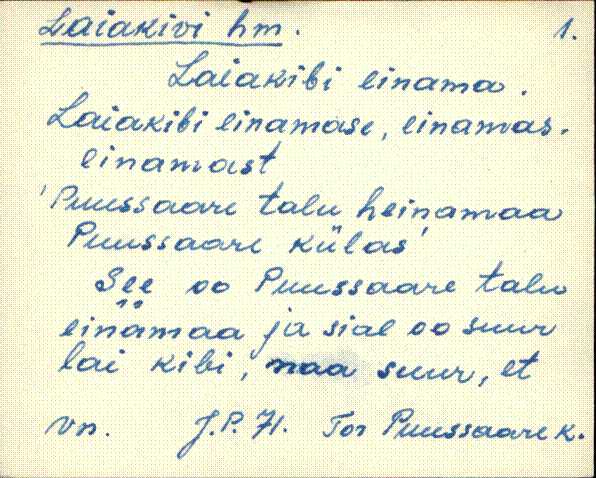 Laiakivi hm. 1.
Laiakibi einama.
Laiakibi einamase, einamas.
einamast
'Puussaare talu heinamaa
Puussaare külas'
See oo Puussaare talu
einämaa ja sial oo suur
lai kibi, naa suur, et
vn. J.P. 71. Tor Puussaare k.